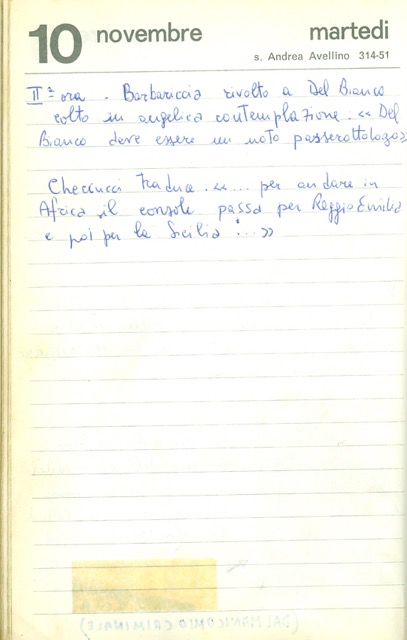 10 novembre martedì
s. Andrea Avellino 314-51
IIª ora. Barbariccia rivolto a Del Bianco
colto in angelica contemplazione: «Del
Bianco deve essere un noto passerottologo»
Checcucci traduce «... per andare in
Africa il console passa per Reggio Emilia
e poi per la Sicilia !...»
(DAL MANICOMIO CRIMINALE)